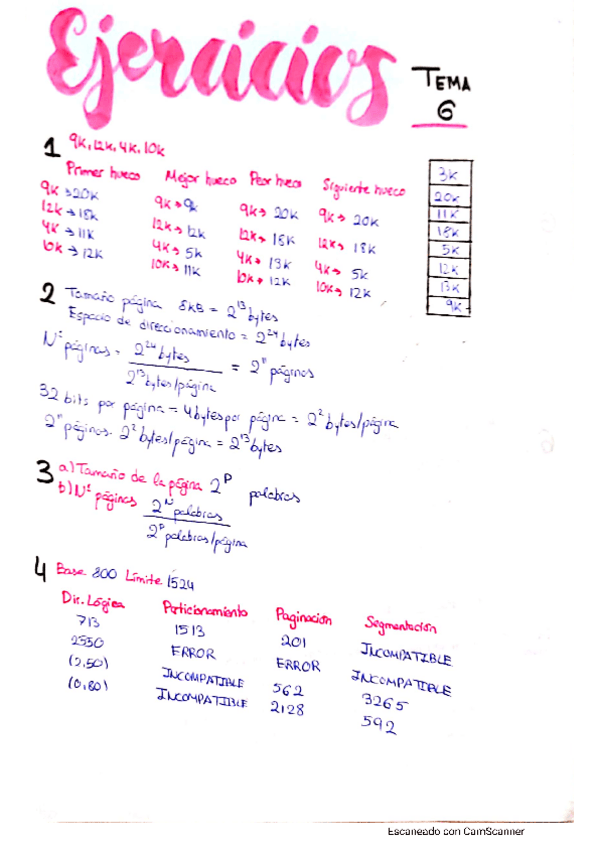 Ejercicios
TEMA
6
1 9K, 12K, 4K, 10K
Primer hueco Mejor hueco Peor hueco Siguiente hueco
9K → 20K 9K → 9K 9K → 20K 9K → 20K
12K → 18K 12K → 12K 12K → 18K 12K → 18K
4K → 11K 4K → 5K 4K → 13K 4K → 5K
10K → 12K 10K → 11K 10K → 12K 10K → 12K
3K
20K
11K
18K
5K
12K
13K
9K
2 Tamaño página 8kB = 2^13 bytes
Espacio de direccionamiento = 2^24 bytes
Nº páginas = 2^24 bytes / 2^13 bytes/página = 2^11 páginas
32 bits por página = 4 bytes por página = 2^2 bytes/página
2^11 páginas · 2^2 bytes/página = 2^13 bytes
3 a) Tamaño de la página 2^P palabras
b) Nº páginas 2^N palabras / 2^P palabras/página
4 Base 800 Límite 1524
Dir. Lógica Particionamiento Paginación Segmentación
713 1513 201 INCOMPATIBLE
2550 ERROR ERROR INCOMPATIBLE
(2,50) INCOMPATIBLE 562 3265
(0,80) INCOMPATIBLE 2128 592
Escaneado con CamScanner